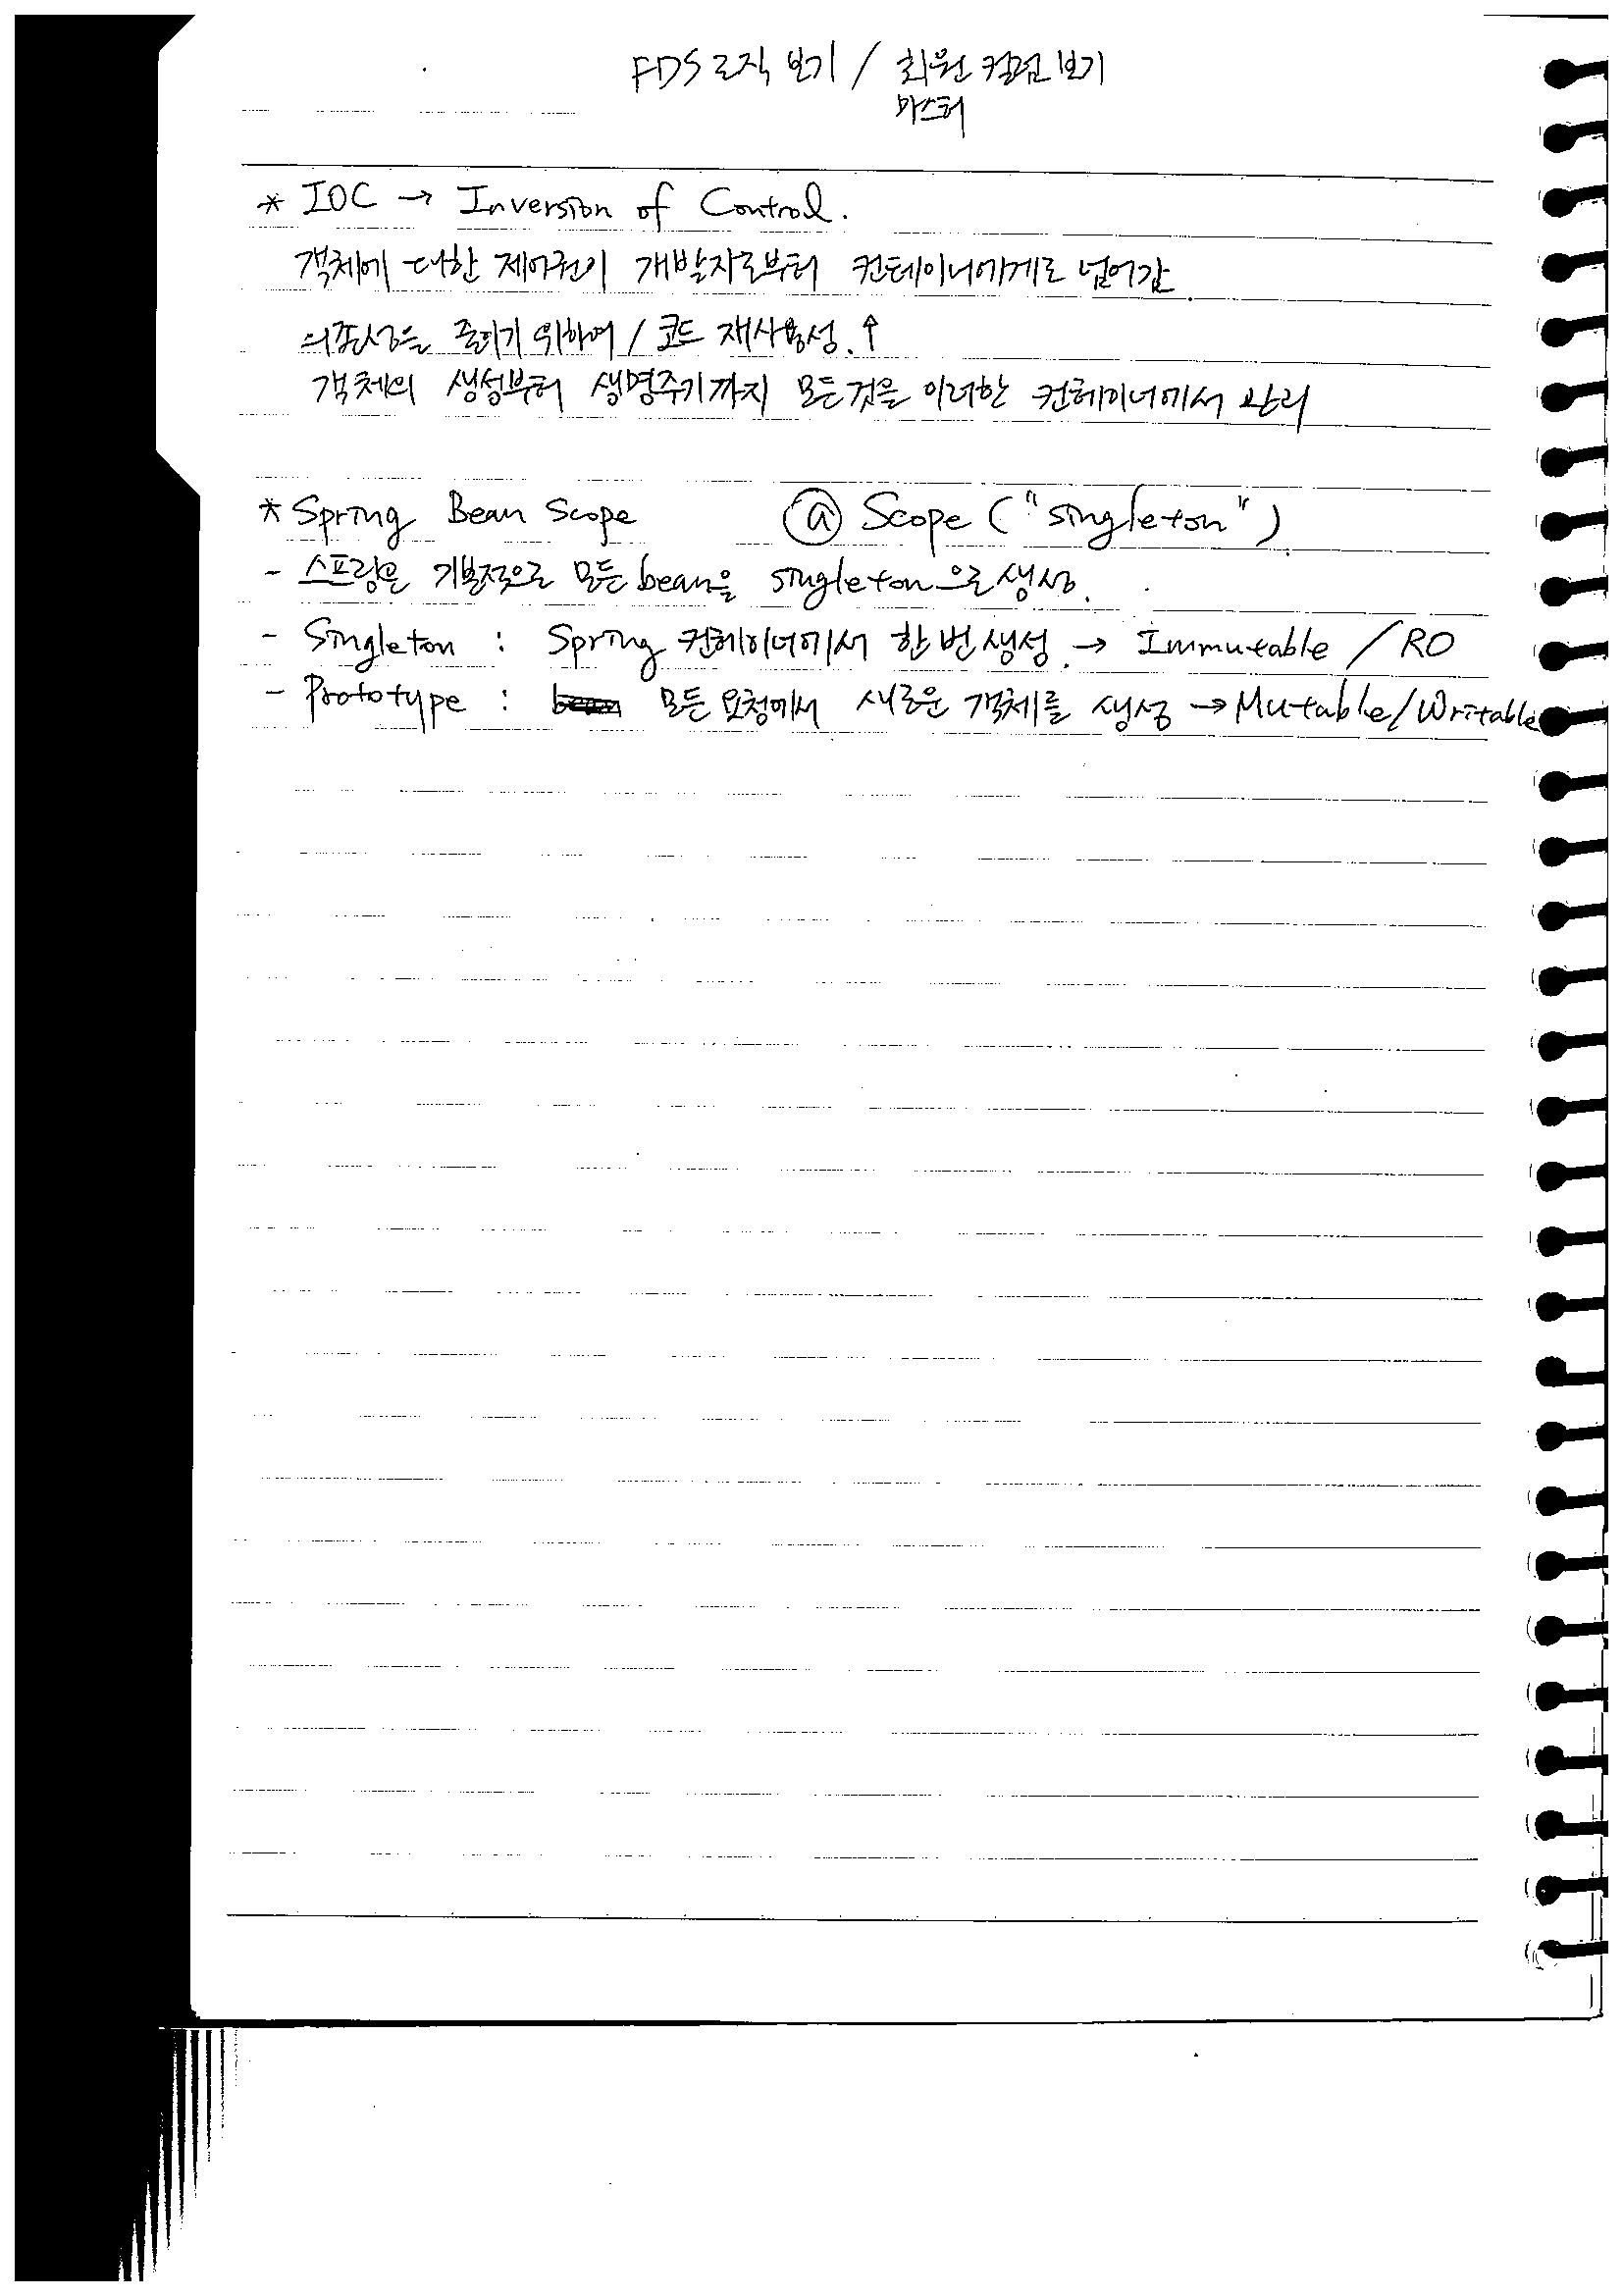 FDS 로직 보기 / 회원 컬럼 보기
마스터
* IOC → Inversion of Control.
객체에 대한 제어권이 개발자로부터 컨테이너에게로 넘어감
의존성을 줄이기 위하여 / 코드 재사용성.↑
객체의 생성부터 생명주기까지 모든것을 이러한 컨테이너에서 관리
* Spring Bean Scope @ Scope ("singleton")
- 스프링은 기본적으로 모든 bean을 singleton으로 생성.
- Singleton : Spring 컨테이너에서 한 번 생성. → Immutable / RO
- Prototype : 모든 요청에서 새로운 객체를 생성 → Mutable/Writable